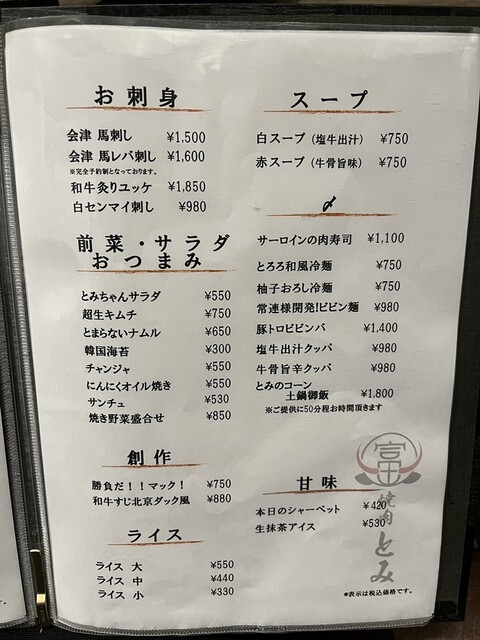 お刺身
会津 馬刺し ¥1,500
会津 馬レバ刺し ¥1,600
※完全予約制となっております。
和牛炙りユッケ ¥1,850
白センマイ刺し ¥980
前菜・サラダ
おつまみ
とみちゃんサラダ ¥550
超生キムチ ¥750
とまらないナムル ¥650
韓国海苔 ¥300
チャンジャ ¥550
にんにくオイル焼き ¥550
サンチュ ¥530
焼き野菜盛合せ ¥850
創作
勝負だ!!マック! ¥750
和牛すじ北京ダック風 ¥880
ライス
ライス 大 ¥550
ライス 中 ¥440
ライス 小 ¥330
スープ
白スープ(塩牛出汁) ¥750
赤スープ(牛骨旨味) ¥750
〆
サーロインの肉寿司 ¥1,100
とろろ和風冷麺 ¥750
柚子おろし冷麺 ¥750
常連様開発!ビビン麺 ¥980
豚トロビビンバ ¥1,400
塩牛出汁クッパ ¥980
牛骨旨辛クッパ ¥980
とみのコーン
土鍋御飯 ¥1,800
※ご提供に50分程お時間頂きます
甘味
本日のシャーベット ¥420
生抹茶アイス ¥530
富
焼肉とみ
*表示は税込価格です。
です。